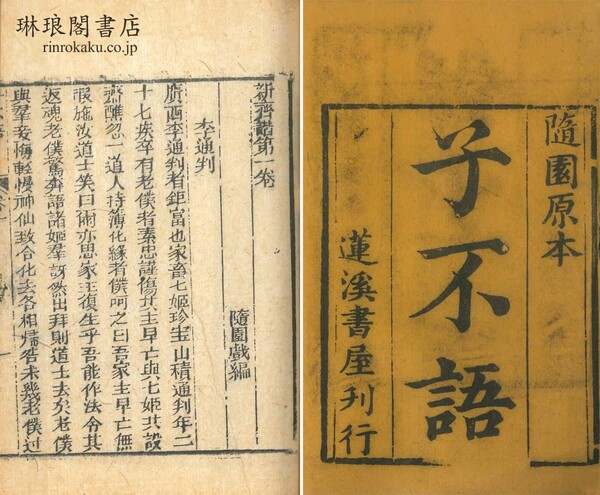 琳琅閣書店
rinrokaku.co.jp
新齊諧第一卷
隨園戲編
李通判
廣西李通判者鉅富也家畜七姬珍寶山積通判年二
十七疾卒有老僕者素忠謹傷其主早亡與七姬共設
齋醮忽一道人持簿化緣老僕呵之曰吾家主早亡無
暇施汝道士笑曰爾亦思家主復生乎吾能作法令其
返魂老僕驚奔語諸姬羣訝然出拜則道士去矣老僕
與羣妾悔輕慢神仙致令化去各相歸咎未幾老僕過
隨園原本
子不語
蓮溪書屋刊行